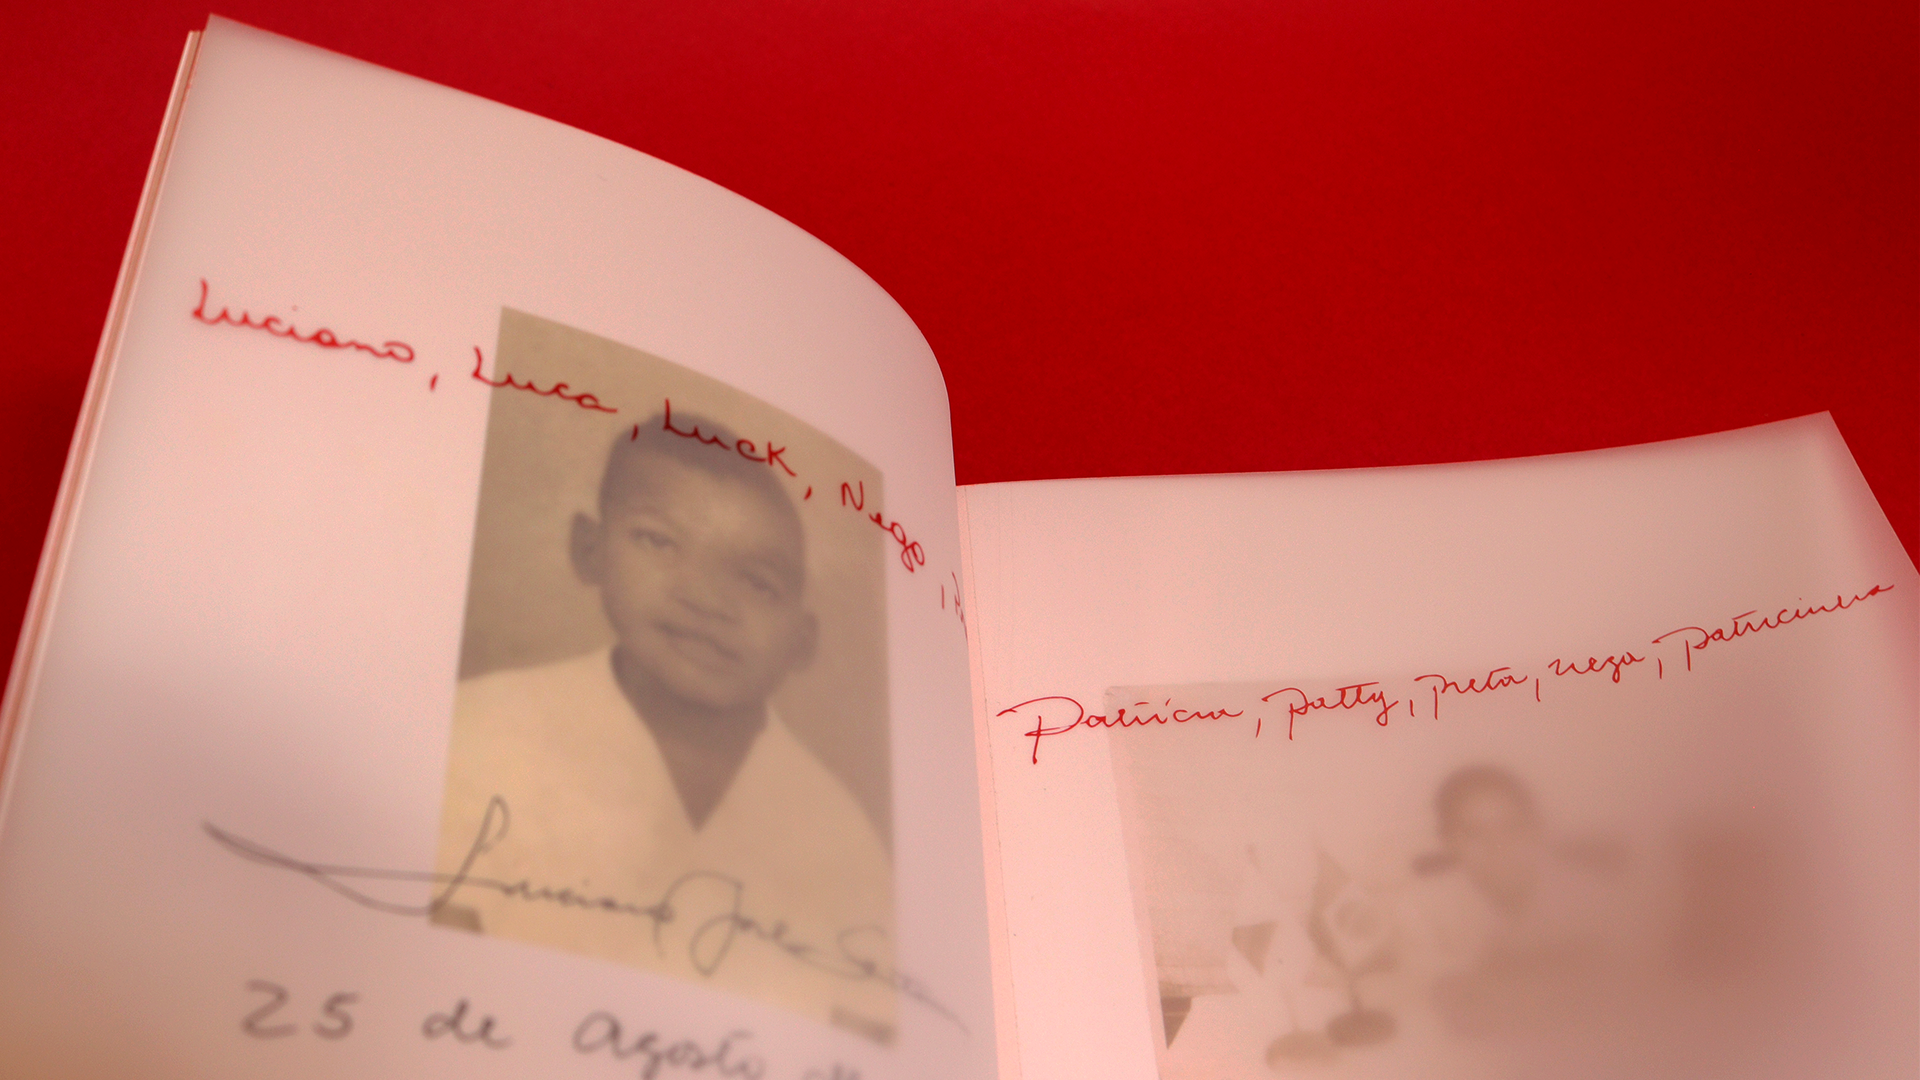 Luciano, Luca, Luck, Nego,
Luciano
25 de agosto
Patrícia, Patty, preta, nega, patricinha